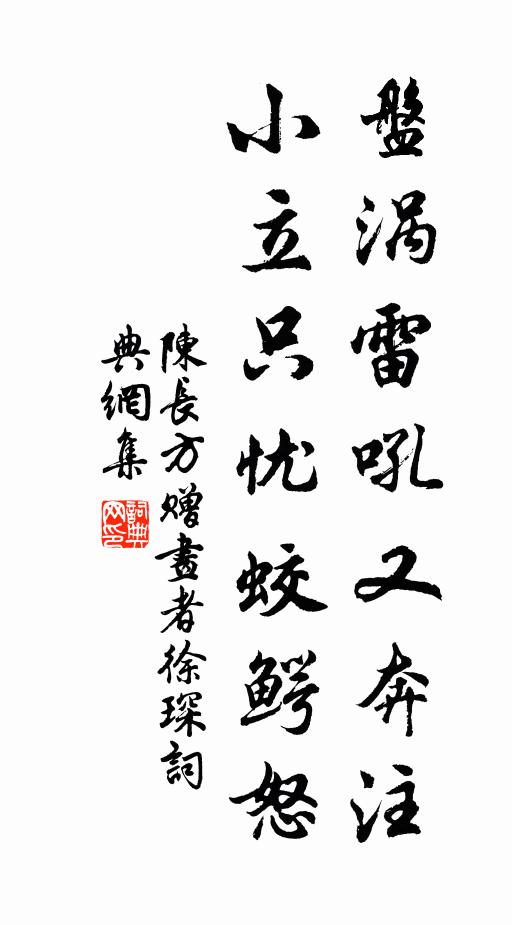 盤涡雷吼又奔注
小立只忧蛟鳄怒
陳長方赠畫者徐琛詞
典網集
詞典
网印